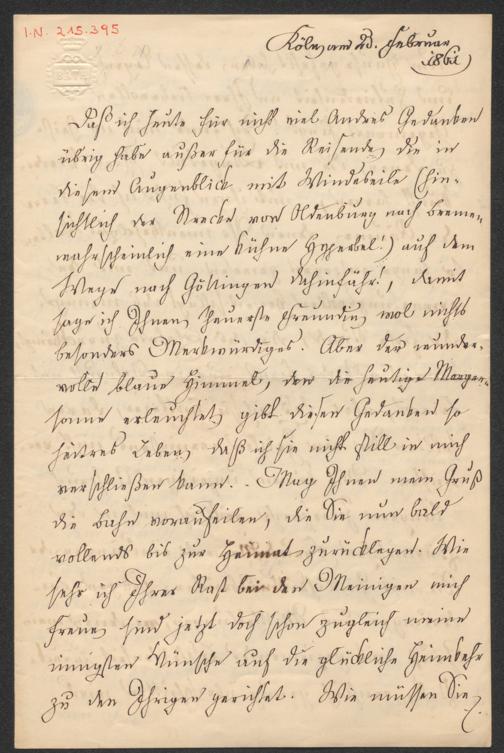 I.N. 215.395
BATH
Köln am 23. Februar
1861
Daß ich heute für nicht viel Andres Gedanken
übrig habe außer für die Reisende, die in
diesem Augenblick mit Windeseile (hin-
sichtlich der Strecke von Oldenburg nach Bremen
wahrscheinlich eine kühne Hyperbel!) auf dem
Wege nach Göttingen dahinfährt, damit
sage ich Ihnen, theuerste Freundin, wol nichts
besonders Merkwürdiges. Aber der wunder-
volle blaue Himmel, den die heutige Morgen-
sonne erleuchtet, gibt diesen Gedanken so
heitres Leben, daß ich sie nicht still in mich
verschließen kann. - Mag Ihnen mein Gruß
die Bahn voraufeilen, die Sie nun bald
vollends bis zur Heimat zurücklegen. Wie
sehr ich Ihrer Rast bei den Meinigen mich
freue, sind jetzt doch schon zugleich meine
innigsten Wünsche auf die glückliche Heimkehr
zu den Ihrigen gerichtet. Wie müssen Sie